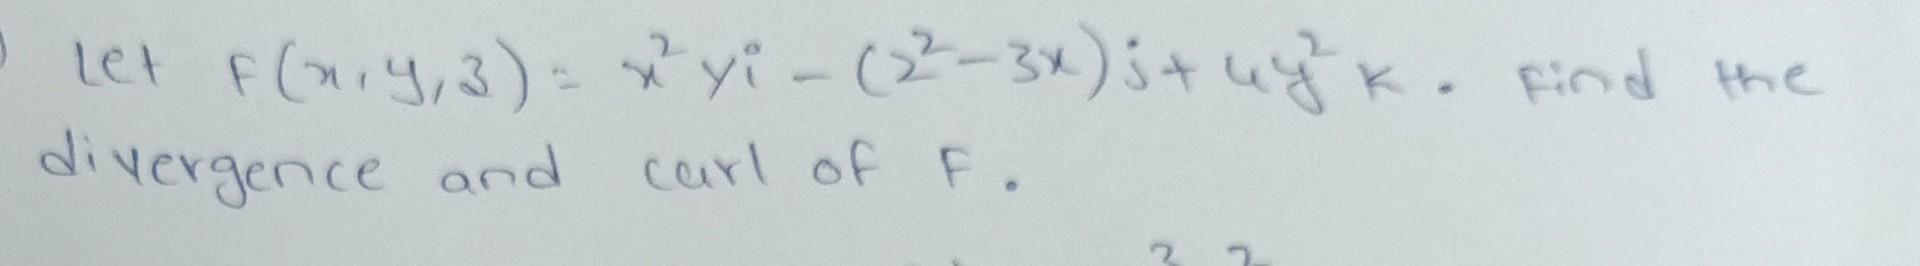 Let F(x,y,z) = x²yi - (z²-3x)j + 4y²k. Find the
divergence and curl of F.